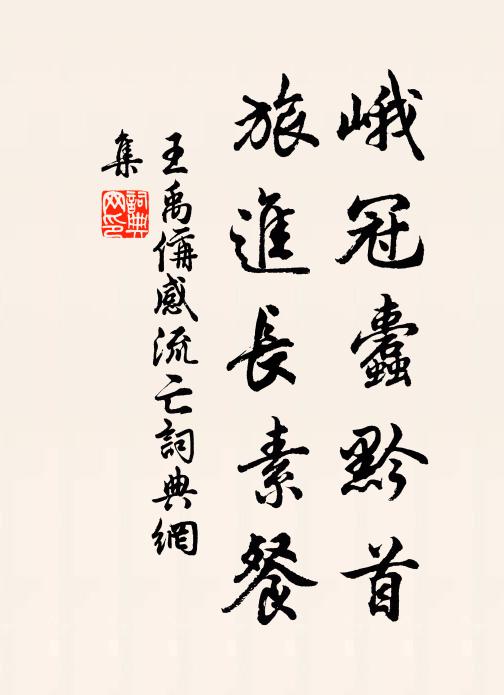 峨冠蠹黔首
旅進長素餐
王禹偁感流亡詞典網
集
詞典網印